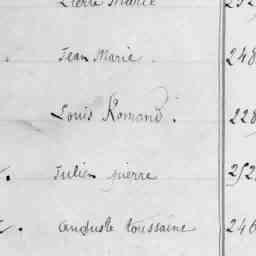 Pierre Marie 252
Jean Marie . 248
Louis Romand . 228
Julien pierre 252
auguste toussaine 246